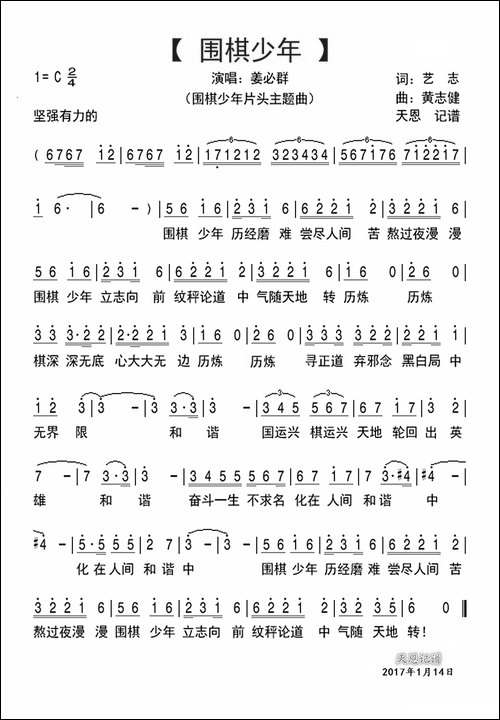 【 围棋少年 】
1= C 2/4
演唱：姜必群
词：艺 志
（围棋少年片头主题曲）
曲：黄志健
坚强有力的
天恩 记谱
( 6767 12 | 6767 12 | 171212 323434 | 567176 712217 |
1 6· | 6 - ) | 56 16 | 231 6 | 6221 2 | 3221 6 |
围棋 少年 历经磨 难 尝尽人间 苦 熬过夜漫 漫
556 16 | 231 6 | 6221 2 | 3231 5 | 16 0 | 26 0 |
围棋 少年 立志向 前 纹秤论道 中 气随天地 转 历炼 历炼
33 3·22 | 2·221 6 | 16 0 | 26 0 | 323 323 | 323 5 |
棋深 深无底 心大大无 边 历炼 历炼 寻正道 弃邪念 黑白局 中
12 3 | 3 - | 3 3·3 | 3 - | 345 567 | 67 12 | 3 2 |
无界 限 和 谐 国运兴 棋运兴 天地 轮回 出 英
7 - | 7 3·3 | 3 - | 3455 567 | 67 12 | 3·#4 | #4 |
雄 和 谐 奋斗一生 不求名 化在 人间 和谐 中
#4 - | 5·5 55 | 27 3 | 3 - | 56 16 | 231 6 | 6221 2 |
化 在人间 和 谐 中 围棋 少年 历经磨 难 尝尽人间 苦
3221 6 | 56 16 | 231 6 | 6221 2 | 32 21 | 6 - ‖
熬过夜漫 漫 围棋 少年 立志向 前 纹秤论道 中 气随 天地 转！
天恩记谱
2017年1月14日